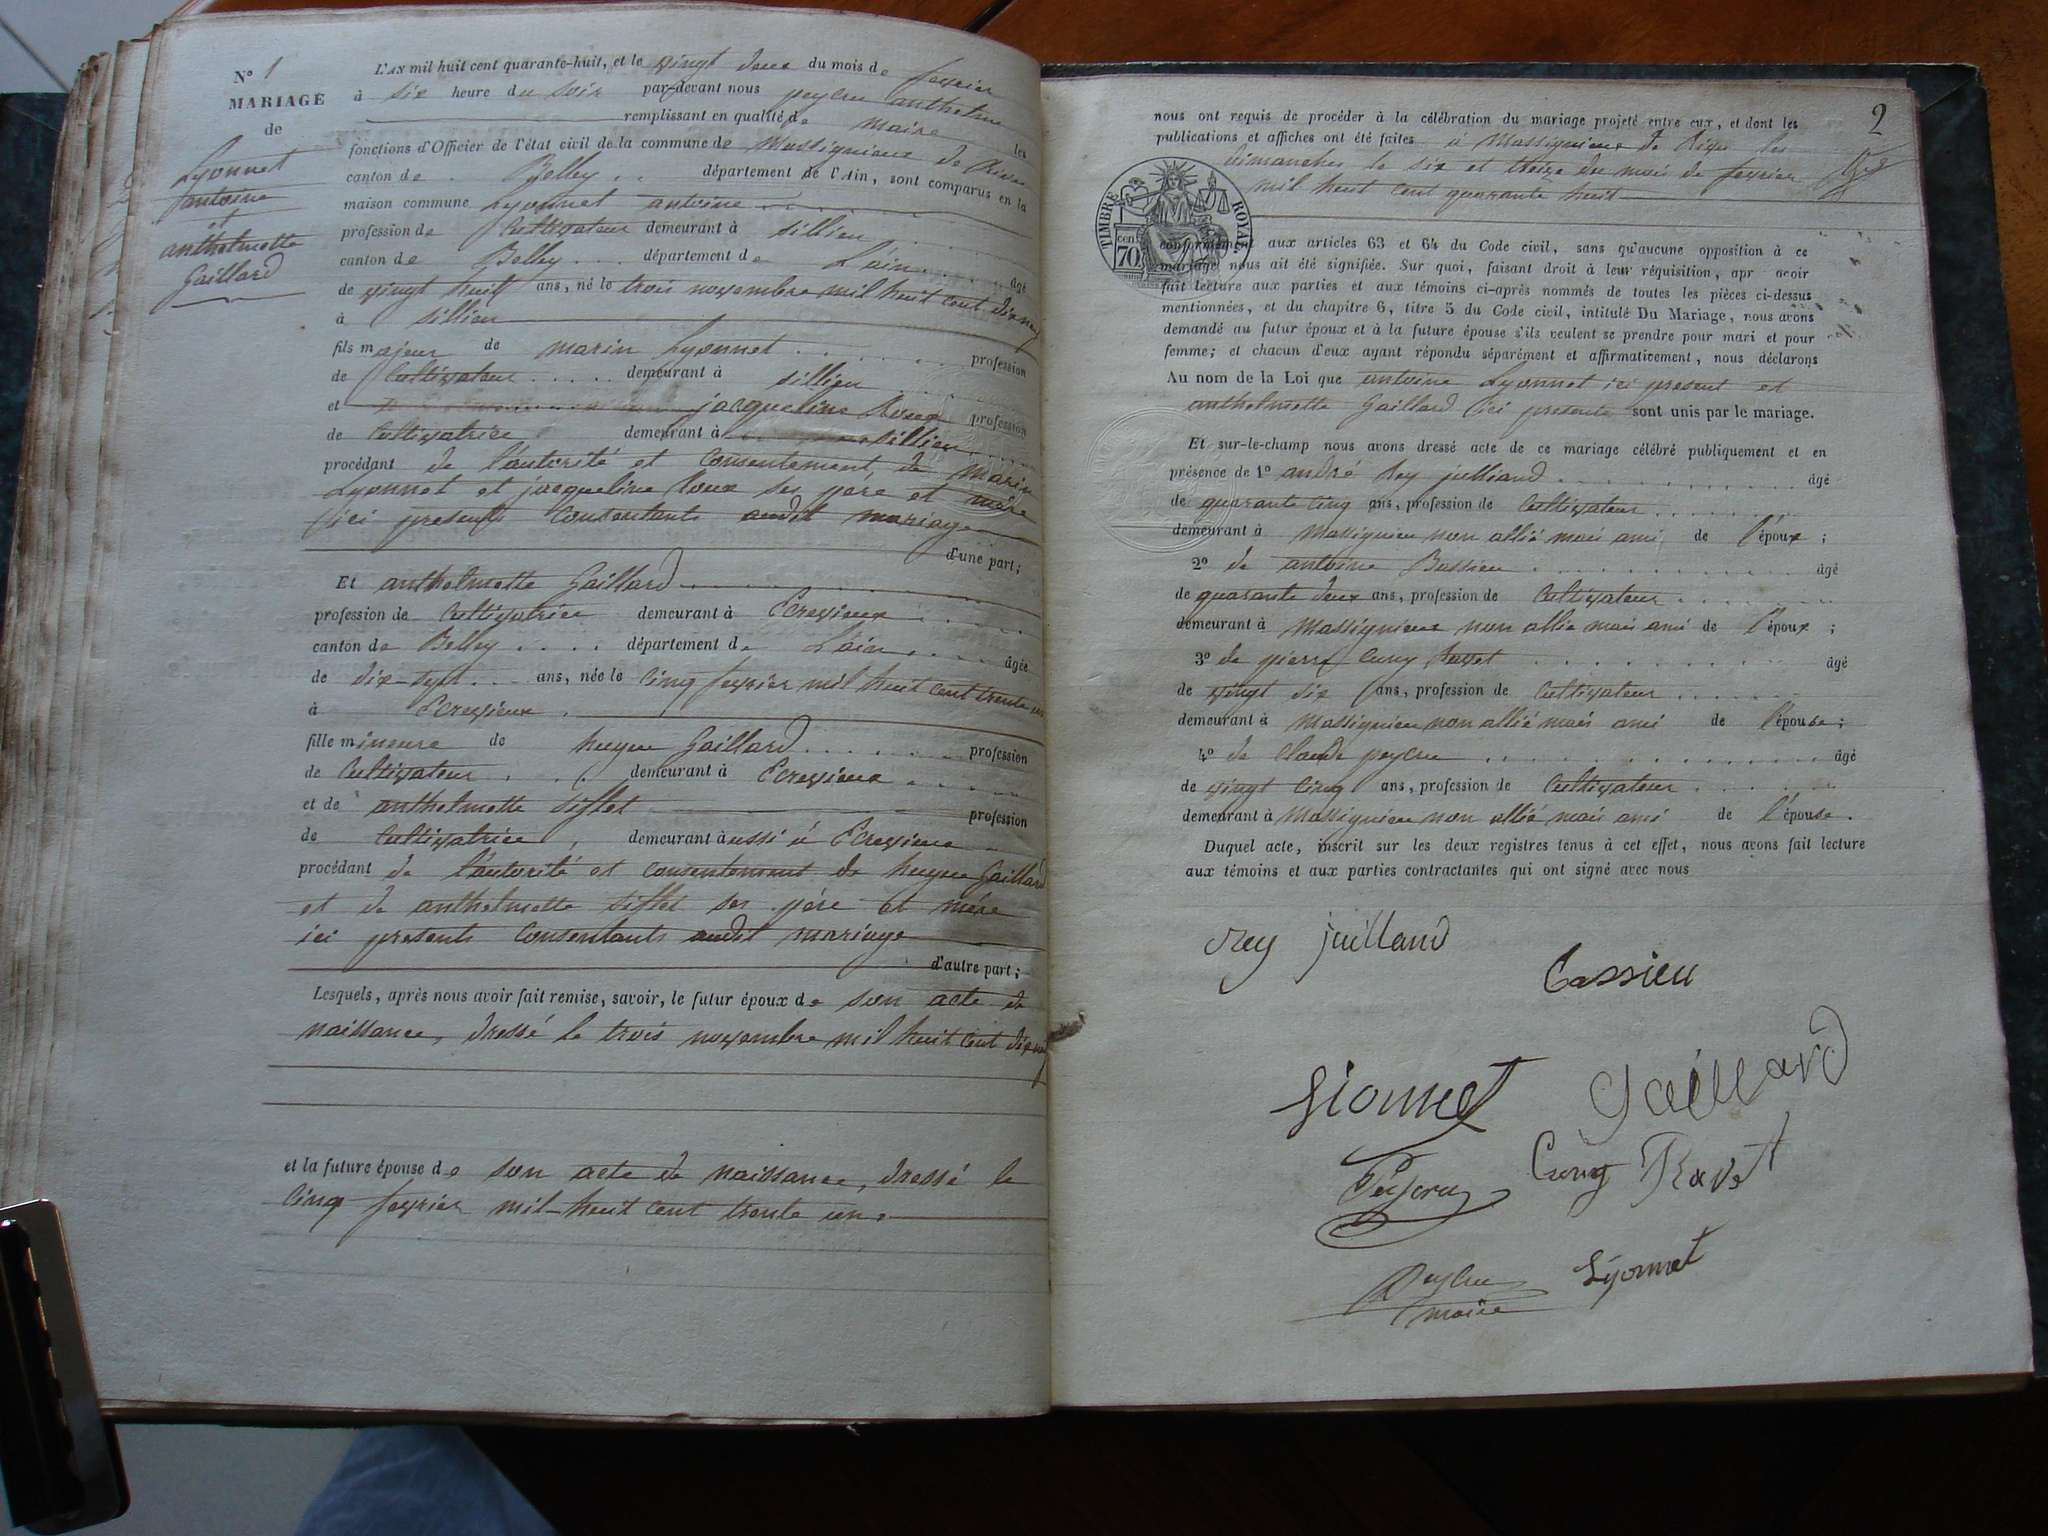 N° 1
MARIAGE
de
Lyonnet
antoine
et
anthelmette
Gaillard
L'AN mil huit cent quarante-huit, et le vingt deux du mois de fevrier
à six heure du soir par-devant nous peycru anthelme
remplissant en qualité de maire les
fonctions d'Officier de l'état civil de la commune de Massignieux de Rives
canton de Belley département de l'Ain, sont comparus en la
maison commune Lyonnet antoine
profession de Cultivateur demeurant à sillieu
canton de Belley département de L'ain âgé
de vingt huit ans, né le trois novembre mil huit cent dix neuf
à sillieu
fils majeur de marin Lyonnet profession
de Cultivateur demeurant à sillieu
et jacqueline Roux profession
de Cultivatrice demeurant à sillieu
procédant de l'autorité et consentement de marin
Lyonnet et jacqueline Roux ses père et mère
ici presents consentants audit mariage
d'une part;
Et anthelmette Gaillard
profession de Cultivatrice demeurant à Ecrevieux
canton de Belley département de L'ain âgée
de dix-sept ans, née le cinq fevrier mil huit cent trente un
à Ecrevieux
fille mineure de hugue Gaillard profession
de Cultivateur demeurant à Ecrevieux
et de anthelmette siflet profession
de Cultivatrice, demeurant àussi à Ecrevieux
procédant de l'autorité et consentement de hugue Gaillard
et de anthelmette siflet ses père et mère
ici presents consentants audit mariage
d'autre part;
Lesquels, après nous avoir fait remise, savoir, le futur époux de son acte de
naissance, dressé le trois novembre mil huit cent dix neuf
et la future épouse de son acte de naissance, dressé le
cinq fevrier mil-huit cent trente un.
2
nous ont requis de procéder à la célébration du mariage projeté entre eux, et dont les
publications et affiches ont été faites à Massignieux de Rives les
dimanches le six et treize du mois de fevrier
mil huit cent quarante huit
TIMBRE ROYAL
cen. 70
conformément aux articles 63 et 64 du Code civil, sans qu'aucune opposition à ce
mariage nous ait été signifiée. Sur quoi, faisant droit à leur réquisition, apr avoir
fait lecture aux parties et aux témoins ci-après nommés de toutes les pièces ci-dessus
mentionnées, et du chapitre 6, titre 5 du Code civil, intitulé Du Mariage, nous avons
demandé au futur époux et à la future épouse s'ils veulent se prendre pour mari et pour
femme; et chacun d'eux ayant répondu séparément et affirmativement, nous déclarons
Au nom de la Loi que antoine Lyonnet ici present et
anthelmette Gaillard ici presente sont unis par le mariage.
Et sur-le-champ nous avons dressé acte de ce mariage célébré publiquement et en
présence de 1° andré Rey julliand âgé
de quarante cinq ans, profession de Cultivateur
demeurant à Massignieu non allié mais ami de l'époux;
2° de antoine Bassieu âgé
de quarante deux ans, profession de Cultivateur
demeurant à Massignieux non allié mais ami de l'époux;
3° de pierre Cuny Ravet âgé
de vingt six ans, profession de Cultivateur
demeurant à Massignieu non allié mais ami de l'épouse;
4° de Claude peycru âgé
de vingt cinq ans, profession de Cultivateur
demeurant à Massignieu non allié mais ami de l'épouse.
Duquel acte, inscrit sur les deux registres tenus à cet effet, nous avons fait lecture
aux témoins et aux parties contractantes qui ont signé avec nous
Rey juilland
Bassieu
Lionnet Gaillard
Peycru Cuny Ravet
Peycru Lyonnet
maire